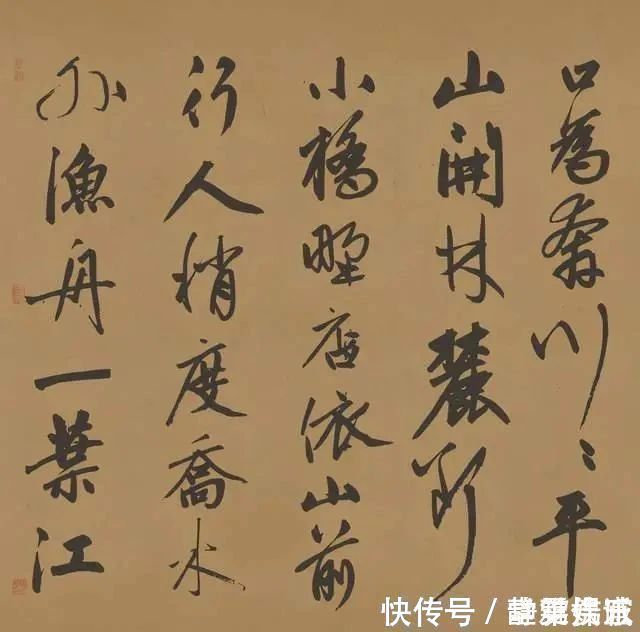 口為奔川〻平
山開林麓斷
小橋野店依山前
行人稍度喬木
外漁舟一葉江
快传号 /